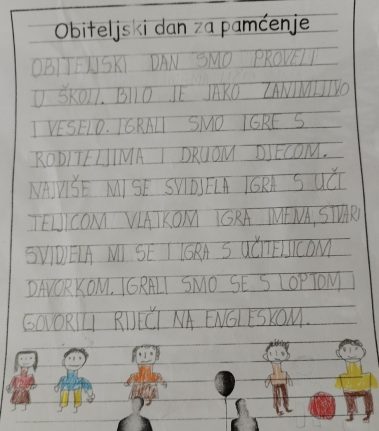 Obiteljski dan za pamćenje
OBITELJSKI DAN SMO PROVELI
U ŠKOLI. BILO JE JAKO ZANIMLJIVO
I VESELO. IGRALI SMO IGRE S
RODITELJIMA I DRUGOM DJECOM.
NAJVIŠE MI SE SVIDJELA IGRA S UČI
TELJICOM VLATKOM IGRA IMENA, STVARI
SVIDJELA MI SE I IGRA S UČITELJICOM
DAVORKOM. IGRALI SMO SE S LOPTOM I
GOVORILI RIJEČI NA ENGLESKOM.